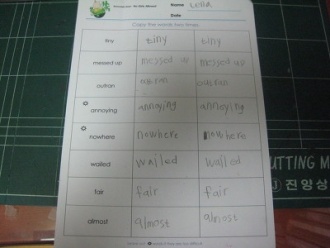 Name Lena
Date
Copy the words two times.
tiny tiny tiny
messed up messed up messed up
outran outran
annoying annoying annoying
nowhere nowhere nowhere
wailed wailed wailed
fair fair fair
almost almost almost
UTTING M
진양상